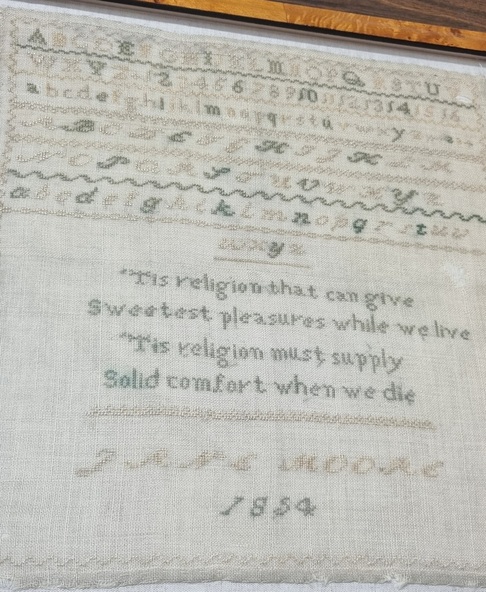 A B C D E F G H I K L M N O P Q R S T U
W X Y Z 1 2 3 4 5 6 7 8 9 10 11 12 13 14 15 16
a b c d e f g h i j k l m n o p q r s t u v w x y z
A B C D E F G H I J K L M
N O P Q R S T U V W X Y Z
a b c d e f g h i k l m n o p q r s t u v
w x y z
"Tis religion that can give
Sweetest pleasures while we live
"Tis religion must supply
Solid comfort when we die
JANE MOORE
1854